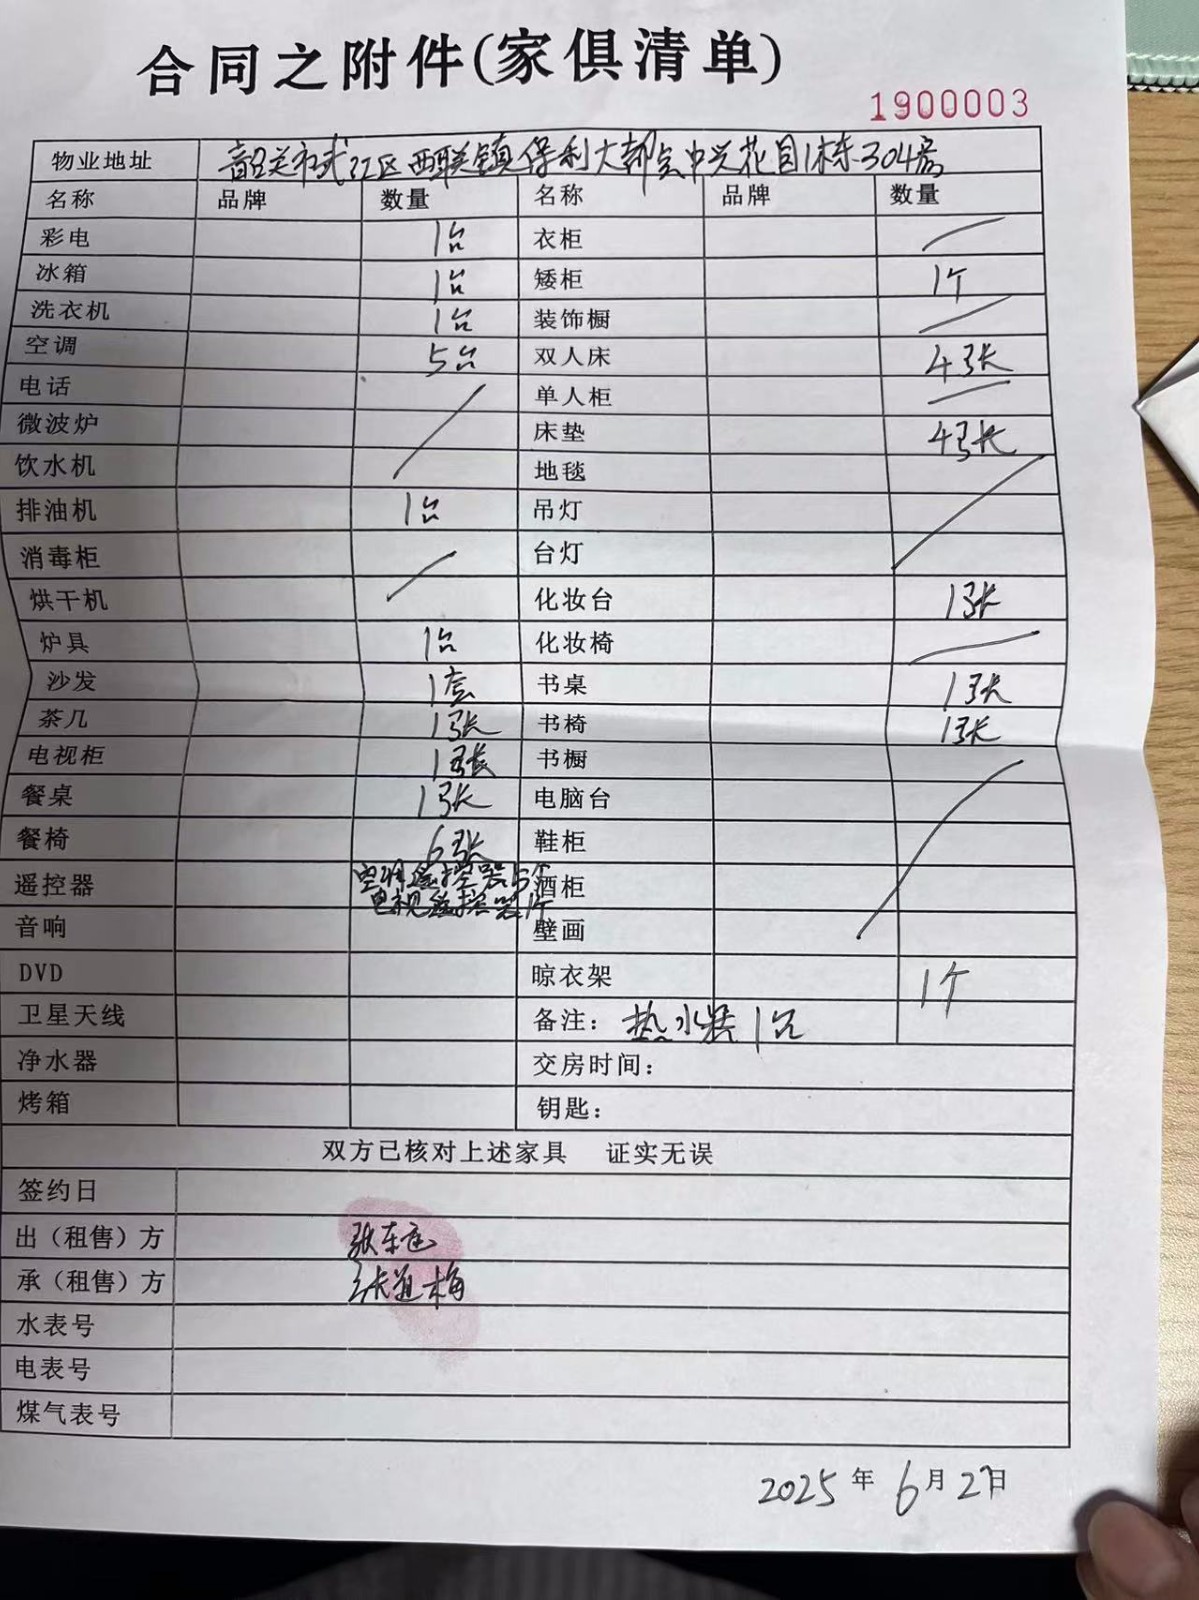 合同之附件(家俱清单)
1900003
物业地址 韶关市武江区西联镇保利大都会中兴花园1栋304房
名称 品牌 数量 名称 品牌 数量
彩电 1台 衣柜
冰箱 1台 矮柜 1个
洗衣机 1台 装饰橱
空调 5台 双人床 4张
电话 单人柜
微波炉 床垫 4张
饮水机 地毯
排油机 1台 吊灯
消毒柜 台灯
烘干机 化妆台 1张
炉具 1台 化妆椅
沙发 1套 书桌 1张
茶几 1张 书椅 1张
电视柜 1张 书橱
餐桌 1张 电脑台
餐椅 6张 鞋柜
遥控器 空调遥控器5个 酒柜
电视遥控器1个
音响 壁画
DVD 晾衣架 1个
卫星天线 备注: 热水器1台
净水器 交房时间:
烤箱 钥匙:
双方已核对上述家具 证实无误
签约日
出（租售）方 张东
承（租售）方 张 梅
水表号
电表号
煤气表号
2025年6月2日